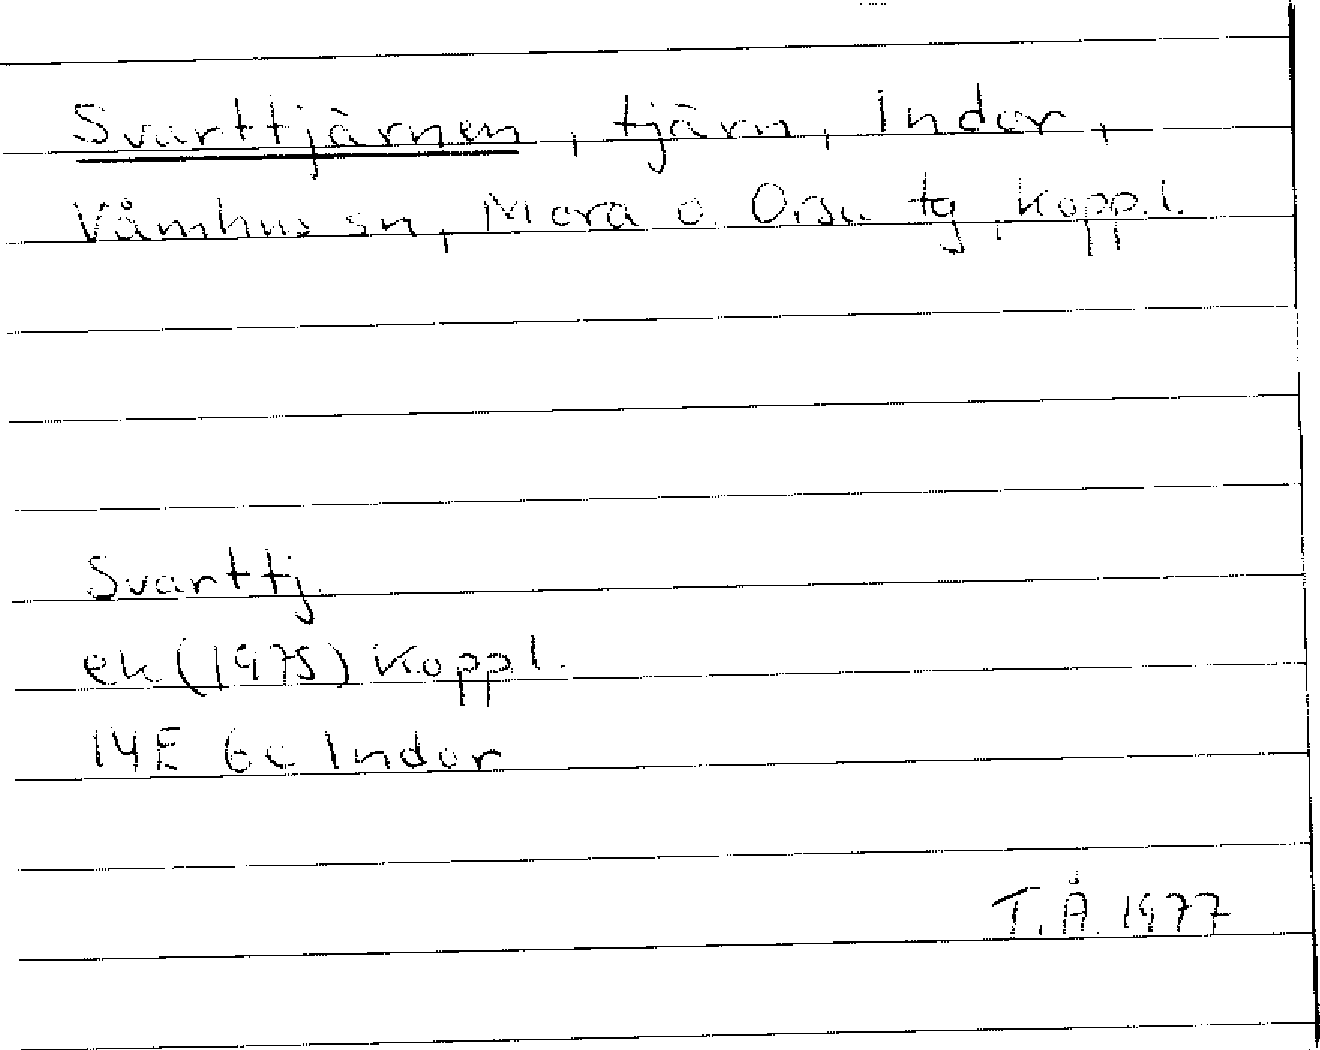 Svarttjärnen, tjärn, Indor,
Våmhus sn, Mora o. Orsa tg, Kopp.l.
Svarttj.
ek (1975) Koppl.
14E 6c Indor
T.Å. 1977